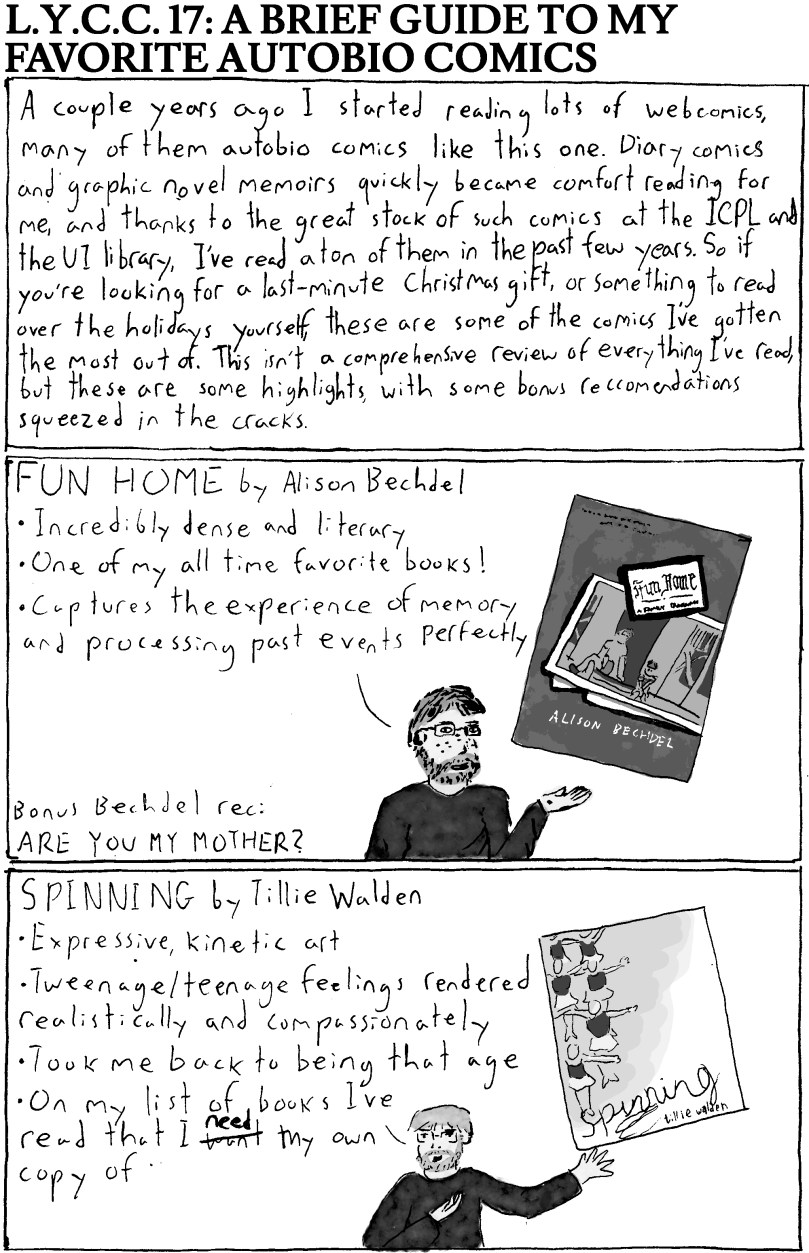 L.Y.C.C. 17: A BRIEF GUIDE TO MY
FAVORITE AUTOBIO COMICS
A couple years ago I started reading lots of webcomics,
many of them autobio comics like this one. Diary comics
and graphic novel memoirs quickly became comfort reading for
me, and thanks to the great stock of such comics at the ICPL and
the UI library, I've read a ton of them in the past few years. So if
you're looking for a last-minute Christmas gift, or something to read
over the holidays yourself, these are some of the comics I've gotten
the most out of. This isn't a comprehensive review of everything I've read,
but these are some highlights, with some bonus reccomendations
squeezed in the cracks.
FUN HOME by Alison Bechdel
• Incredibly dense and literary
• One of my all time favorite books!
• Captures the experience of memory
and processing past events perfectly
Fun Home
ALISON BECHDEL
Bonus Bechdel rec:
ARE YOU MY MOTHER?
SPINNING by Tillie Walden
• Expressive, kinetic art
• Tweenage/teenage feelings rendered
realistically and compassionately
• Took me back to being that age
• On my list of books I've
read that I need want my own
copy of
Spinning
tillie walden